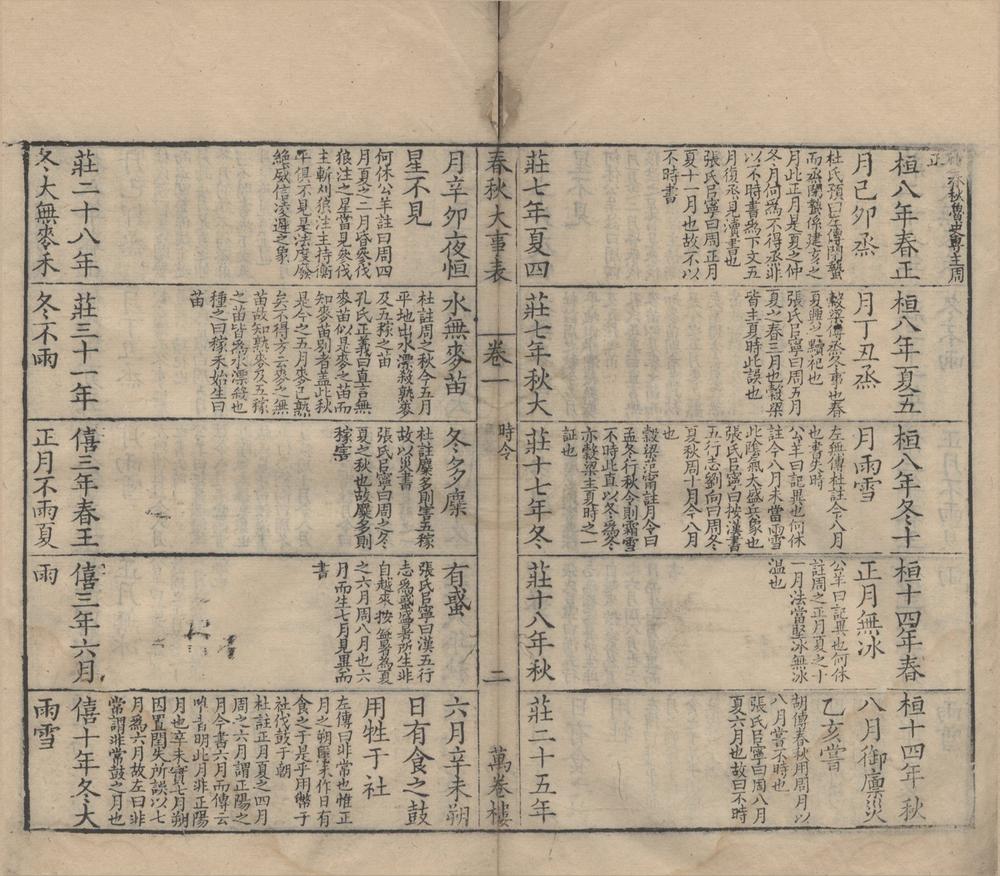 秋魯史尊主周
正
桓八年春正
月己卯烝
杜氏預曰左傳閉蟄
而烝閉蟄係建亥之
月此正月是夏之仲
冬月何爲不得烝非
以不時書爲下文五
月復烝見瀆書也
張氏㠯寧曰周正月
夏十一月也故不以
不時書
莊七年夏四
桓八年夏五
月丁丑烝
穀梁傳烝冬事也春
夏興之黷祀也
張氏㠯寧曰周五月
夏之春三月也穀梁
皆主夏時此誤也
莊七年秋大
桓八年冬十
月雨雪
左無傳杜註今八月
也書失時
公羊曰記異也何休
註今八月未當雨雪
此陰氣大盛兵象也
張氏㠯寧曰按漢書
五行志劉向曰周冬
夏秋周十月今八月
也
穀梁范甯註月令曰
孟冬行秋令則霜雪
不時此直以冬爲冬
亦穀梁主夏時之一
証也
莊十七年冬
桓十四年春
正月無冰
公羊曰記異也何休
註周之正月夏之十
一月法當堅冰無冰
温也
莊十八年秋
桓十四年秋
八月御廩災
乙亥嘗
胡傳春秋用周月以
八月嘗不時也
張氏㠯寧曰周八月
夏六月也故曰不時
莊二十五年
春秋大事表
卷一
時令
二
萬卷樓
月辛卯夜恒
星不見
何休公羊註曰周四
月夏之二月昏參伐
狼注之星當見參伐
主斬刈狼注主持衡
平俱不見是法度廢
絶威信凌遲之象
莊二十八年
冬大無麥禾
水無麥苗
杜註周之秋今五月
平地出水漂殺熟麥
及五稼之苗
孔氏正義曰直言無
麥苗似是麥之苗而
知麥苗别者盖此秋
是今之五月麥已熟
矣不得方云麥之無
苗故知熟麥及五稼
之苗皆爲水漂殺也
種之曰稼禾始生曰
苗
莊三十一年
冬不雨
冬多麋
杜註麋多則害五稼
故以災書
張氏㠯寧曰周之冬
夏之秋也故麋多則
稼害
僖三年春王
正月不雨夏
有蜮
張氏㠯寧曰漢五行
志爲蜮盛暑所生非
自越來按盛暑爲夏
之六月周八月也六
月而生七月見異而
書
僖三年六月
雨
六月辛未朔
日有食之鼓
用牲于社
左傳曰非常也惟正
月之朔慝未作日有
食之于是乎用幣于
社伐鼓于朝
杜註正月夏之四月
周之六月謂正陽之
月今書六月而傳云
唯者明此月非正陽
月也辛未實七月朔
因置閏失所誤以七
月爲六月故左曰非
常謂非常鼓之月也
僖十年冬大
雨雪